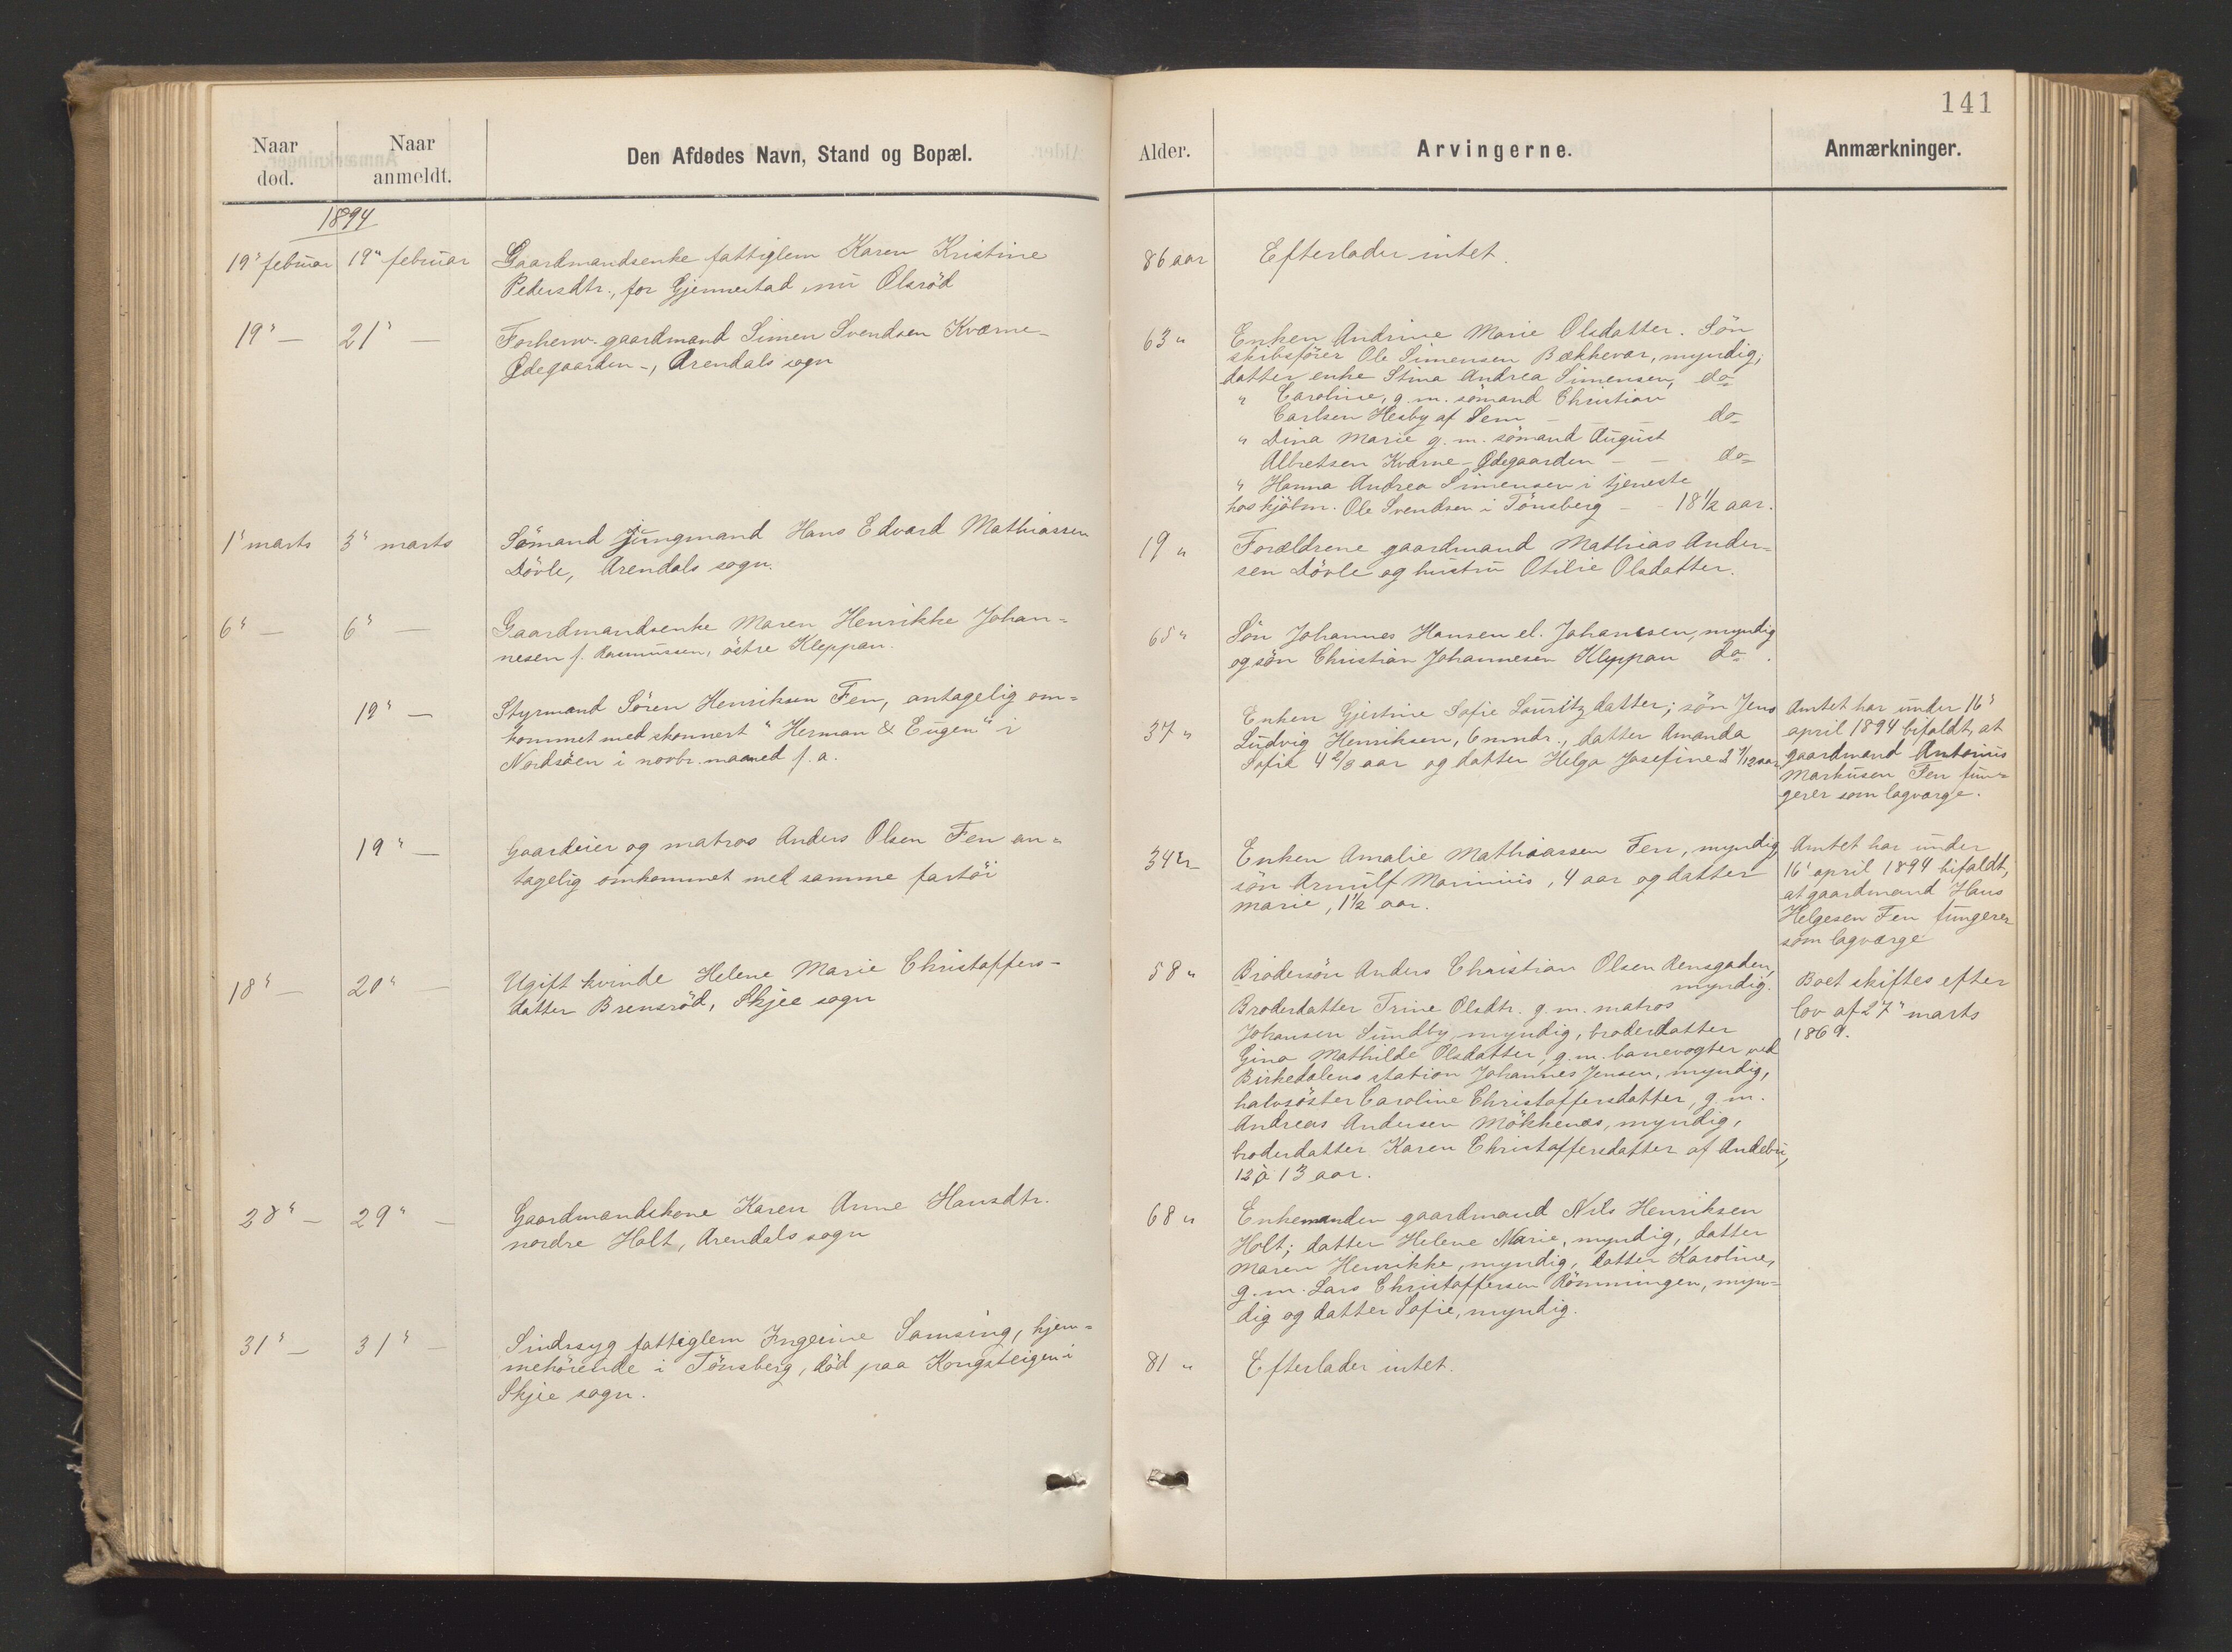 141
Naar død.
Naar anmeldt.
Den Afdødes Navn, Stand og Bopæl.
Alder.
Arvingerne.
Anmærkninger.
1894
19" februar
19" februar
Gaardmandsenke fattiglem Karen Kristine
Pedersdtr., før Gjennestad, nu Olsrød
86 aar
Efterlader intet.
19" —
21" —
Forhenv. gaardmand Simen Svendsen Kværne-
Ødegaarden -, Arendals sogn
63 "
Enken Andrine Marie Olsdatter. Søn
skibsfører Ole Simensen Bækkevar, myndig;
datter enke Stina Andrea Simensen, do-
" Caroline, g. m. sømand Christian
Carlsen Hesby af Sem — do-
" Dina Marie g. m. sømand August
Albretsen Kværne-Ødegaarden — — do-
" Hanna Andrea Simensen i tjeneste
hos kjøbm. Ole Svendsen i Tønsberg - - 18 1/2 aar.
1" marts
3" marts
Sømand jungmand Hans Edvard Mathiassen
Døvle, Arendals sogn.
19 "
Forældrene gaardmand Mathias Ander-
sen Døvle og hustru Otilie Olsdatter.
6" —
6" —
Gaardmandsenke Maren Henrikke Johan-
nesen f. Rasmussen, østre Kleppan.
65 "
Søn Johannes Hansen el. Johansen, myndig
og søn Christian Johannesen Kleppan do-.
19" —
Styrmand Søren Henriksen Fen, antagelig om-
kommet med skonnert "Herman & Eugen" i
Nordsøen i novbr. maaned f. a.
37 "
Enken Gjestine Sofie Lauritzdatter; søn Jens
Ludvig Henriksen, 6 mndr., datter Amanda
Sofie 4 2/3 aar og datter Helga Josefine 3 1/12 aar
Amtet har under 16"
april 1894 bifaldt, at
gaardmand Antonius
Markusen Fen fun-
gerer som lagværge.
19" —
Gaardeier og matros Anders Olsen Fen an-
tagelig omkommet med samme fartøi
34 "
Enken Amalie Mathiassen Fen, myndig,
søn Arnulf Marinius, 4 aar og datter
Marie, 1 1/2 aar.
Amtet har under
16" april 1894 bifaldt,
at gaardmand Hans
Helgesen Fen fungerer
som lagværge
18" —
20" —
Ugift kvinde Helene Marie Christoffers-
datter Brensrød, Skjee sogn
58 "
Brodersøn Anders Christian Olsen
myndig.
Broderdatter Trine Olsdtr. g. m. matros
Johansen Sundby, myndig, broderdatter
Gina Mathilde Olsdatter, g. m. banevogter ved
Birkedalens station Johannes Jensen, myndig,
halvsøster Caroline Christoffersdatter, g. m.
Andreas Andersen Møkkenæs, myndig,
broderdatter Karen Christoffersdatter af Andebu,
12 à 13 aar.
Boet skiftes efter
lov af 27" marts
1869.
28" —
29" —
Gaardmandskone Karen Anne Hansdtr.
nordre Holt, Arendals sogn
68 "
Enkemanden gaardmand Nils Henriksen
Holt; datter Helene Marie, myndig, datter
Maren Henrikke, myndig, datter Karoline,
g. m. Lars Christoffersen Rømmingen, myn-
dig og datter Sofie, myndig.
31" —
31" —
Sindssyg fattiglem Ingerine Samsing, hjem-
mehørende i Tønsberg, død paa Kongsteigen i
Skjee sogn.
81 "
Efterlader intet.